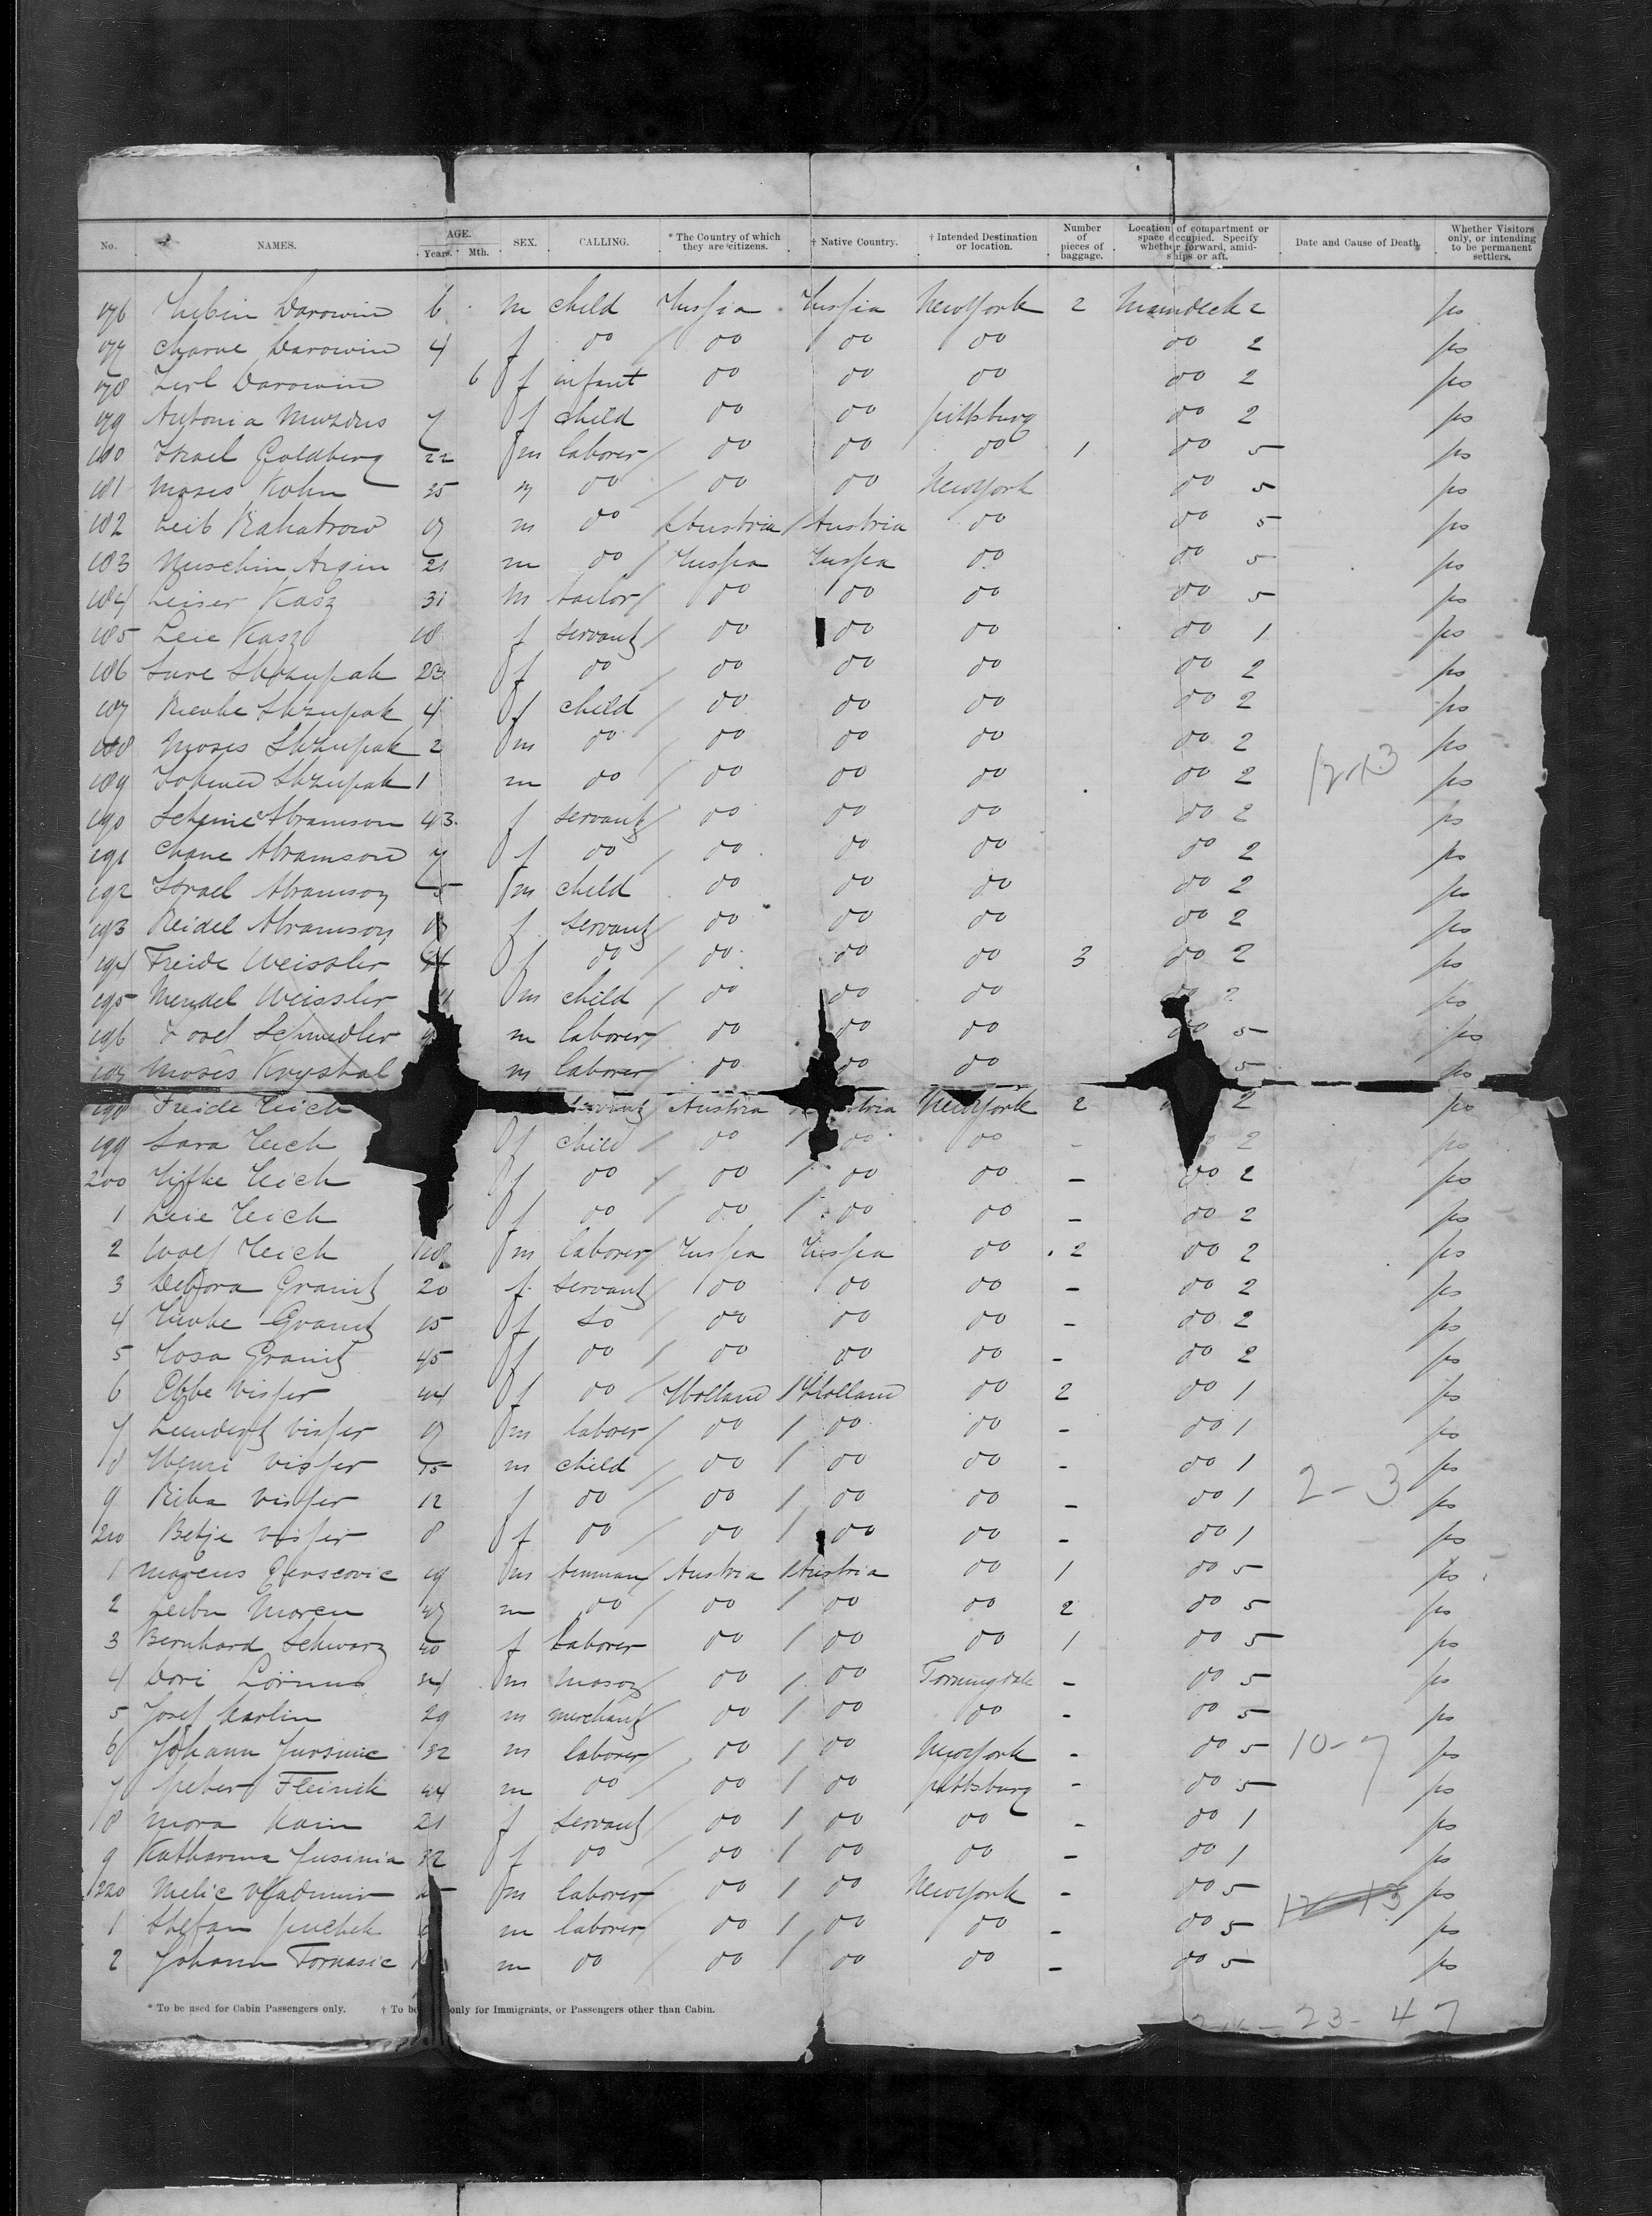 No. NAMES. AGE. Years. Mth. SEX. CALLING. * The Country of which they are citizens. † Native Country. † Intended Destination or location. Number of pieces of baggage. Location of compartment or space occupied. Specify whether forward, amidships or aft. Date and Cause of Death. Whether Visitors only, or intending to be permanent settlers.
176 Rubin Darowin 6 m child Russia Russia New York 2 Maindeck 2 ps
177 Charne Darowin 4 f do do do do do 2 ps
178 Zirl Darowin 6 f infant do do do do 2 ps
179 Antonia 7 f child do do pittsburg do 2 ps
180 Israel Goldberg 22 m laborer do do do 1 do 5 ps
181 Moses Kohn 25 m do do do New York do 5 ps
182 Leib 17 m do Austria Austria do do 5 ps
183 Nuschin Argin 21 m do Russia Russia do do 5 ps
184 Leiser Kasz 31 m tailor do do do do 5 ps
185 Leie Kasz 18 f servant do do do do 1 ps
186 Sure Skrzupak 23 f do do do do do 2 ps
187 Rievke Skrzupak 4 f child do do do do 2 ps
188 Moses Skrzupak 2 m do do do do do 2 ps
189 Skrzupak 1 m do do do do do 2 ps
190 Scheine Abramson 43 f servant do do do do 2 ps
191 Chane Abramson 7 f do do do do do 2 ps
192 Israel Abramson 5 m child do do do do 2 ps
193 Reidel Abramson f servant do do do do 2 ps
194 Freide Weissler f do do do do 3 do 2 ps
195 Mendel Weissler m child do do do do 2 ps
196 Josel Schmedler m laborer do do do do 5 ps
197 Moses Krystal m laborer do do do 5 ps
198 Freide Reich servant Austria New York 2 2 ps
199 Sara Reich f child do do do - 2 ps
200 Rifke Reich f do do do do - do 2 ps
1 Leie Reich f do do do do - do 2 ps
2 Wolf Reich 18 m laborer Russia Russia do 2 do 2 ps
3 Debora Granit 20 f servant do do do - do 2 ps
4 Rievke Granit 15 f do do do do - do 2 ps
5 Rosa Granit 45 f do do do do - do 2 ps
6 Ebbe Visser 44 f do Holland Holland do 2 do 1 ps
7 Leendert Visser 17 m laborer do do do - do 1 ps
8 Henri Visser 15 m child do do do - do 1 2-3 ps
9 Rika Visser 12 f do do do do - do 1 ps
210 Betje Visser 8 f do do do do - do 1 ps
1 Marcus 19 m Austria Austria do 1 do 5 ps
2 Leibu Marcu 47 m do do do do 2 do 5 ps
3 Bernhard Schwarz 40 f laborer do do do 1 do 5 ps
4 Dori 34 m mason do do - do 5 ps
5 Josef Karlin 29 m merchant do do do - do 5 ps
6 Johann 32 m laborer do do New York - do 5 10-7 ps
7 peter 44 m do do do pittsburg - do 5 ps
8 Mora Kain 21 f servant do do do - do 1 ps
9 Katharina Jusinia 32 f do do do do - do 1 ps
220 Melic Vladimir m laborer do do New York - do 5 12-13 ps
1 Stefan m laborer do do do - do 5 ps
2 Johann Tomasic m do do do do - do 5 ps
* To be used for Cabin Passengers only. † To be only for Immigrants, or Passengers other than Cabin.
23-47